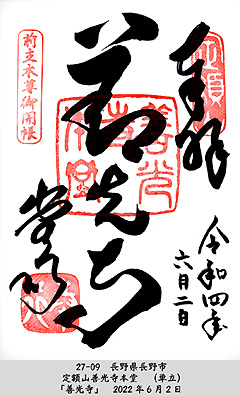 奉拝
令和四年
六月二日
善光寺
前立本尊御開帳
善光寺本堂
27-09 長野県長野市
定額山善光寺本堂 (単立)
「善光寺」 2022年6月2日